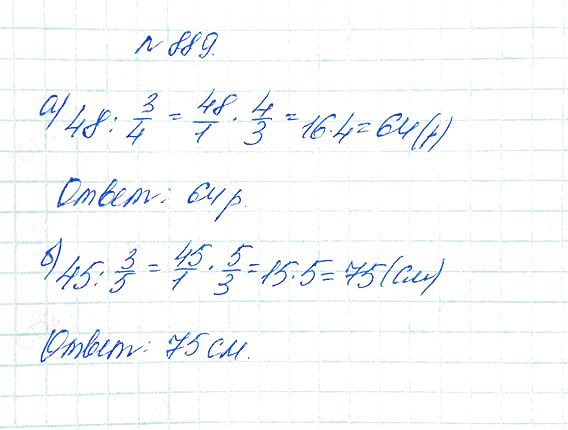 № 889.
а) 48 : 3/4 = 48/1 · 4/3 = 16·4 = 64 (р)
Ответ: 64 р.
б) 45 : 3/5 = 45/1 · 5/3 = 15·5 = 75 (см)
Ответ: 75 см.